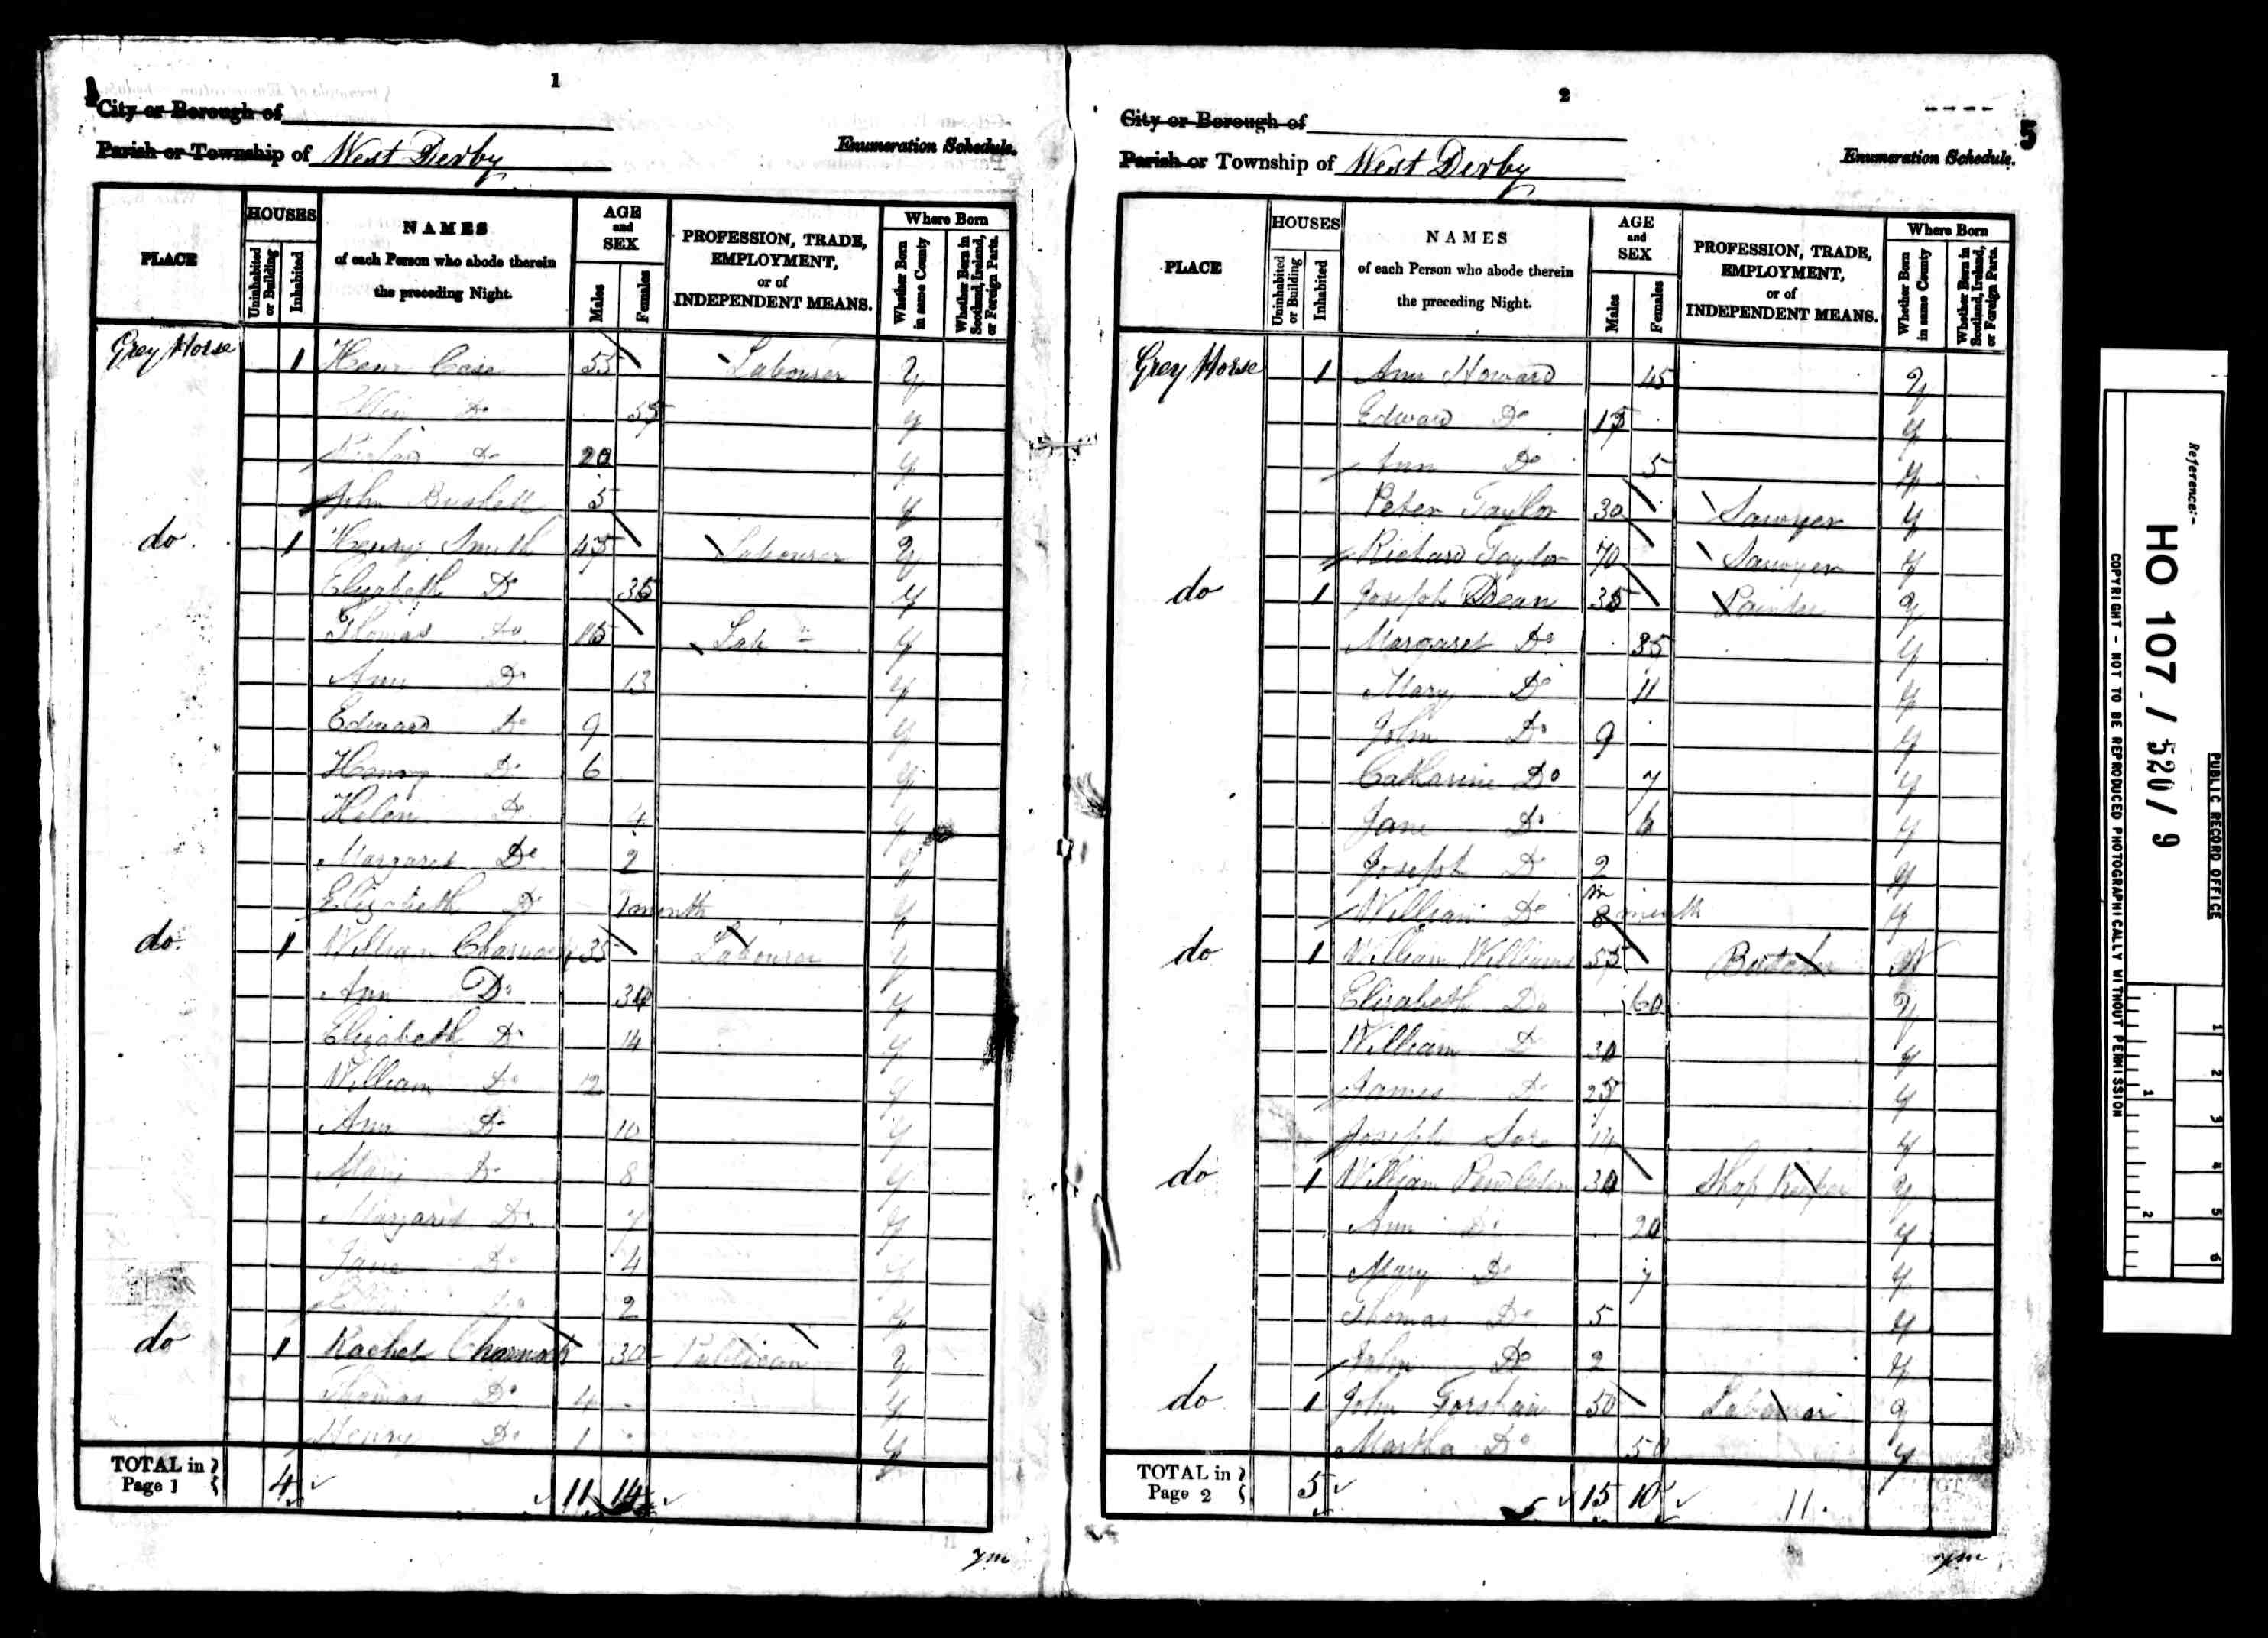 1
City or Borough of
Parish or Township of West Derby
Enumeration Schedule.
PLACE
HOUSES
Uninhabited or Building
Inhabited
NAMES
of each Person who abode therein
the preceding Night.
AGE
and
SEX
Males
Females
PROFESSION, TRADE,
EMPLOYMENT,
or of
INDEPENDENT MEANS.
Where Born
Whether Born in same County
Whether Born in Scotland, Ireland, or Foreign Parts.
Grey Horse 1 Case 55 Labourer y
Do 55 y
Do 20 y
John 5 y
do 1 Henry Smith 45 Labourer y
Elizabeth Do 35 y
Thomas do 15 Lab y
Ann Do 13 y
Edward do 9 y
Henry Do 6 y
Helen Do 4 y
Margaret Do 2 y
Elizabeth Do 1 month y
do 1 William Charnock 35 Labourer y
Ann Do 30 y
Elizabeth Do 14 y
William Do 12 y
Ann Do 10 y
Mary Do 8 y
Margaret Do 7 y
Jane Do 4 y
Do 2 y
do 1 Rachel Charnock 30 Publican y
Thomas Do 4 y
Henry Do 1 y
TOTAL in Page 1 4 11 14
2
5
City or Borough of
Parish or Township of West Derby
Enumeration Schedule.
PLACE
HOUSES
Uninhabited or Building
Inhabited
NAMES
of each Person who abode therein
the preceding Night.
AGE
and
SEX
Males
Females
PROFESSION, TRADE,
EMPLOYMENT,
or of
INDEPENDENT MEANS.
Where Born
Whether Born in same County
Whether Born in Scotland, Ireland, or Foreign Parts.
Grey Horse 1 Ann Howard 45 y
Edward Do 15 y
Ann Do 5 y
Peter Taylor 30 Sawyer y
Richard Taylor 70 Sawyer y
do 1 Joseph Dean 35 Painter y
Margaret Do 35 y
Mary Do 11 y
John Do 9 y
Catharine Do 7 y
Jane Do 6 y
Joseph Do 2 y
William Do 8 month y
do 1 William Williams 55 Butcher N
Elizabeth Do 60 y
William Do 30 y
James Do 25 y
Joseph 14 y
do 1 William Pendleton 30 Shop Keeper y
Ann Do 20 y
Mary Do 7 y
Thomas Do 5 y
John Do 2 y
do 1 John 50 Labourer y
Martha Do 50 y
TOTAL in Page 2 5 15 10 11.
Reference:-
HO 107 / 520 / 9
PUBLIC RECORD OFFICE
COPYRIGHT - NOT TO BE REPRODUCED PHOTOGRAPHICALLY WITHOUT PERMISSION
1 2 3 4 5 6
1 2